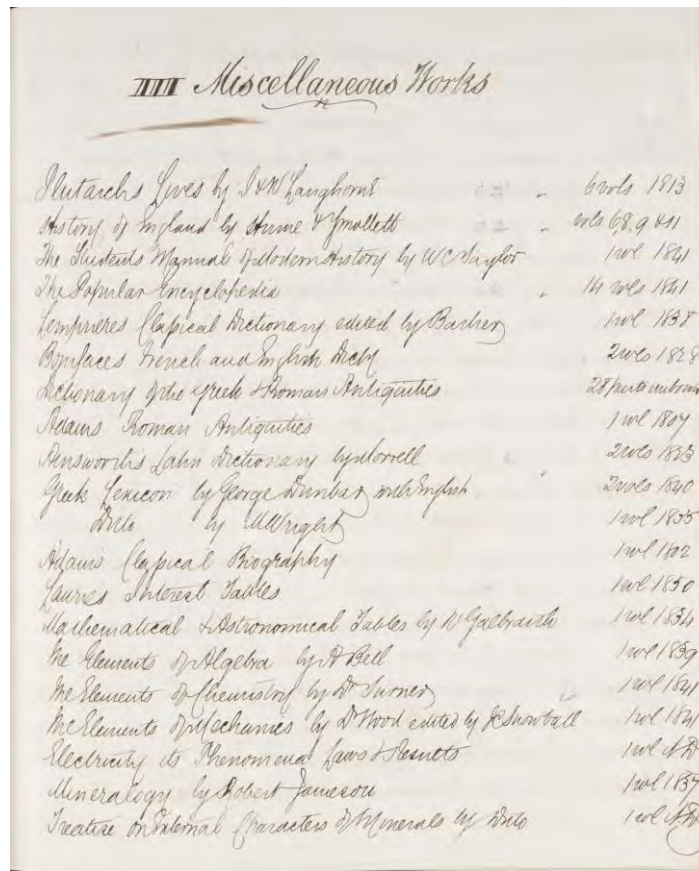 IIII Miscellaneous Works
Plutarchs Lives by J & W Langhorne 6 vols 1813
History of England by Hume & Smollett vols 6 8, 9 & 11
The Students Manual of Modern History by WC Taylor 1 vol 1841
The Popular Encyclopedia 14 vols 1841
Lemprieres Classical Dictionary edited by Barker 1 vol 1838
Bonifaces French and English Dicty 2 vols 1828
Dictionary of the Greek & Roman Antiquities 28 parts unbound
Adams Roman Antiquities 1 vol 1807
Ainsworths Latin Dictionary by Morell 2 vols
Greek Lexicon by George Dunbar with English 2 vols 1840
Ditto by M Wright 1 vol 1835
Adams Classical Biography 1 vol 1802
Lauries Interest Tables 1 vol 1850
Mathematical & Astronomical Tables by W Galbraith 1 vol 1834
The Elements of Algebra by A Bell 1 vol 1839
The Elements of Chemistry by Dr Turner 1 vol 1841
The Elements of Mechanics by D Wood edited by JC Snowball 1 vol 1841
Electricity its Phenomena Laws & Results 1 vol ND
Mineralogy by Robert Jameson 1 vol 1837
Treatise on External Characters of Minerals by Ditto 1 vol ND